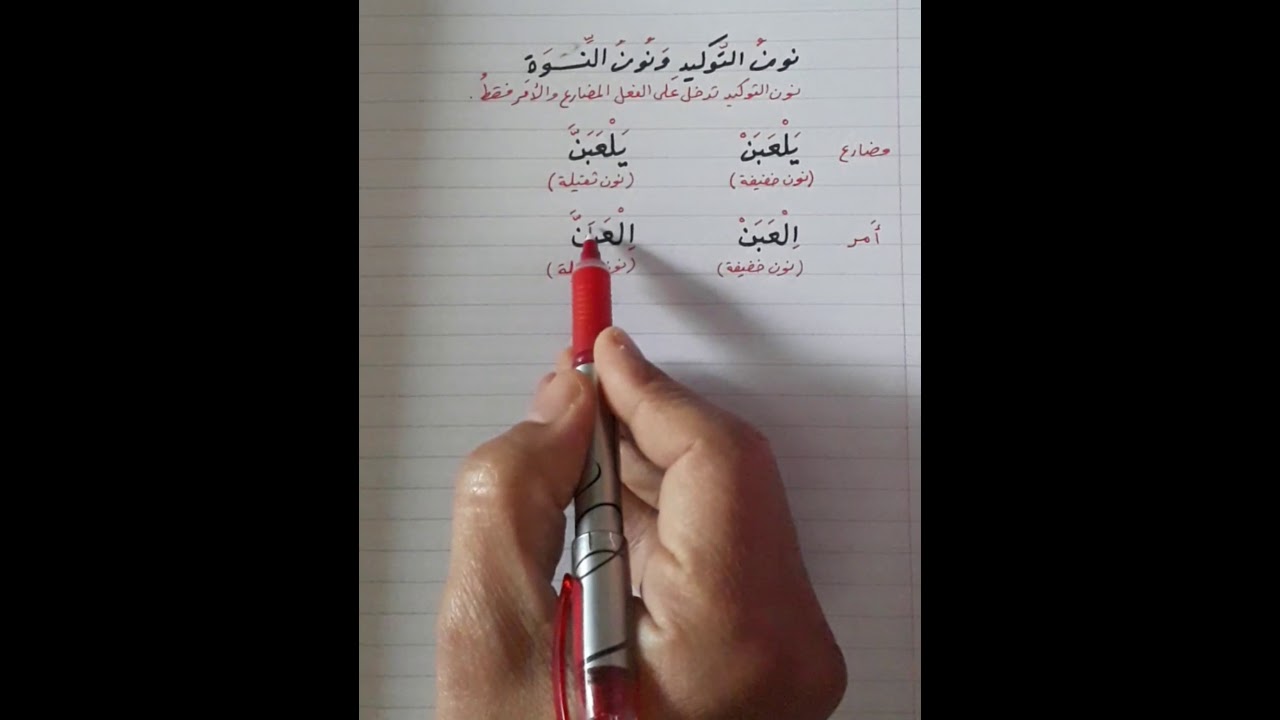 نونُ التَّوكيدِ وَنُونُ النِّسْوَة
نون التوكيد تدخل على الفعل المضارع والأمر فقط.
مضارع يَلْعَبَنْ يَلْعَبَنَّ
(نون خفيفة) (نون ثقيلة)
أمر اِلْعَبَنْ اِلْعَبَنَّ
(نون خفيفة) (نون